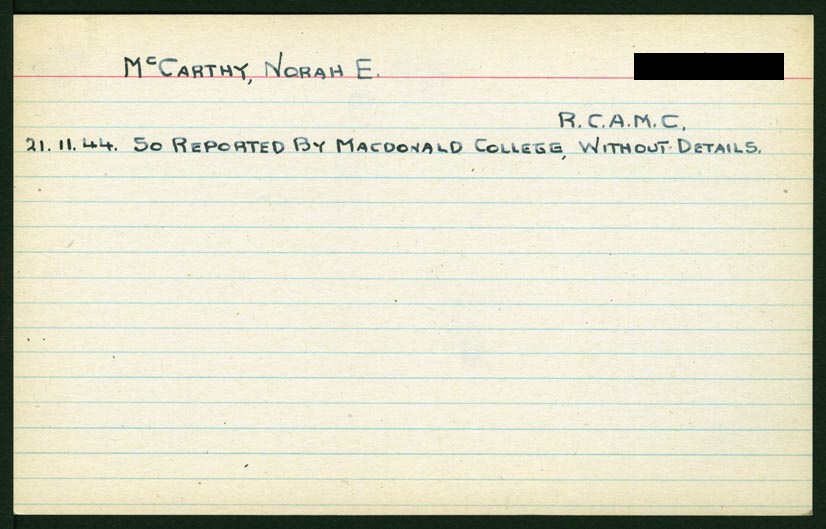 McCARTHY, NORAH E.
R.C.A.M.C.
21.11.44. SO REPORTED BY MACDONALD COLLEGE, WITHOUT DETAILS.